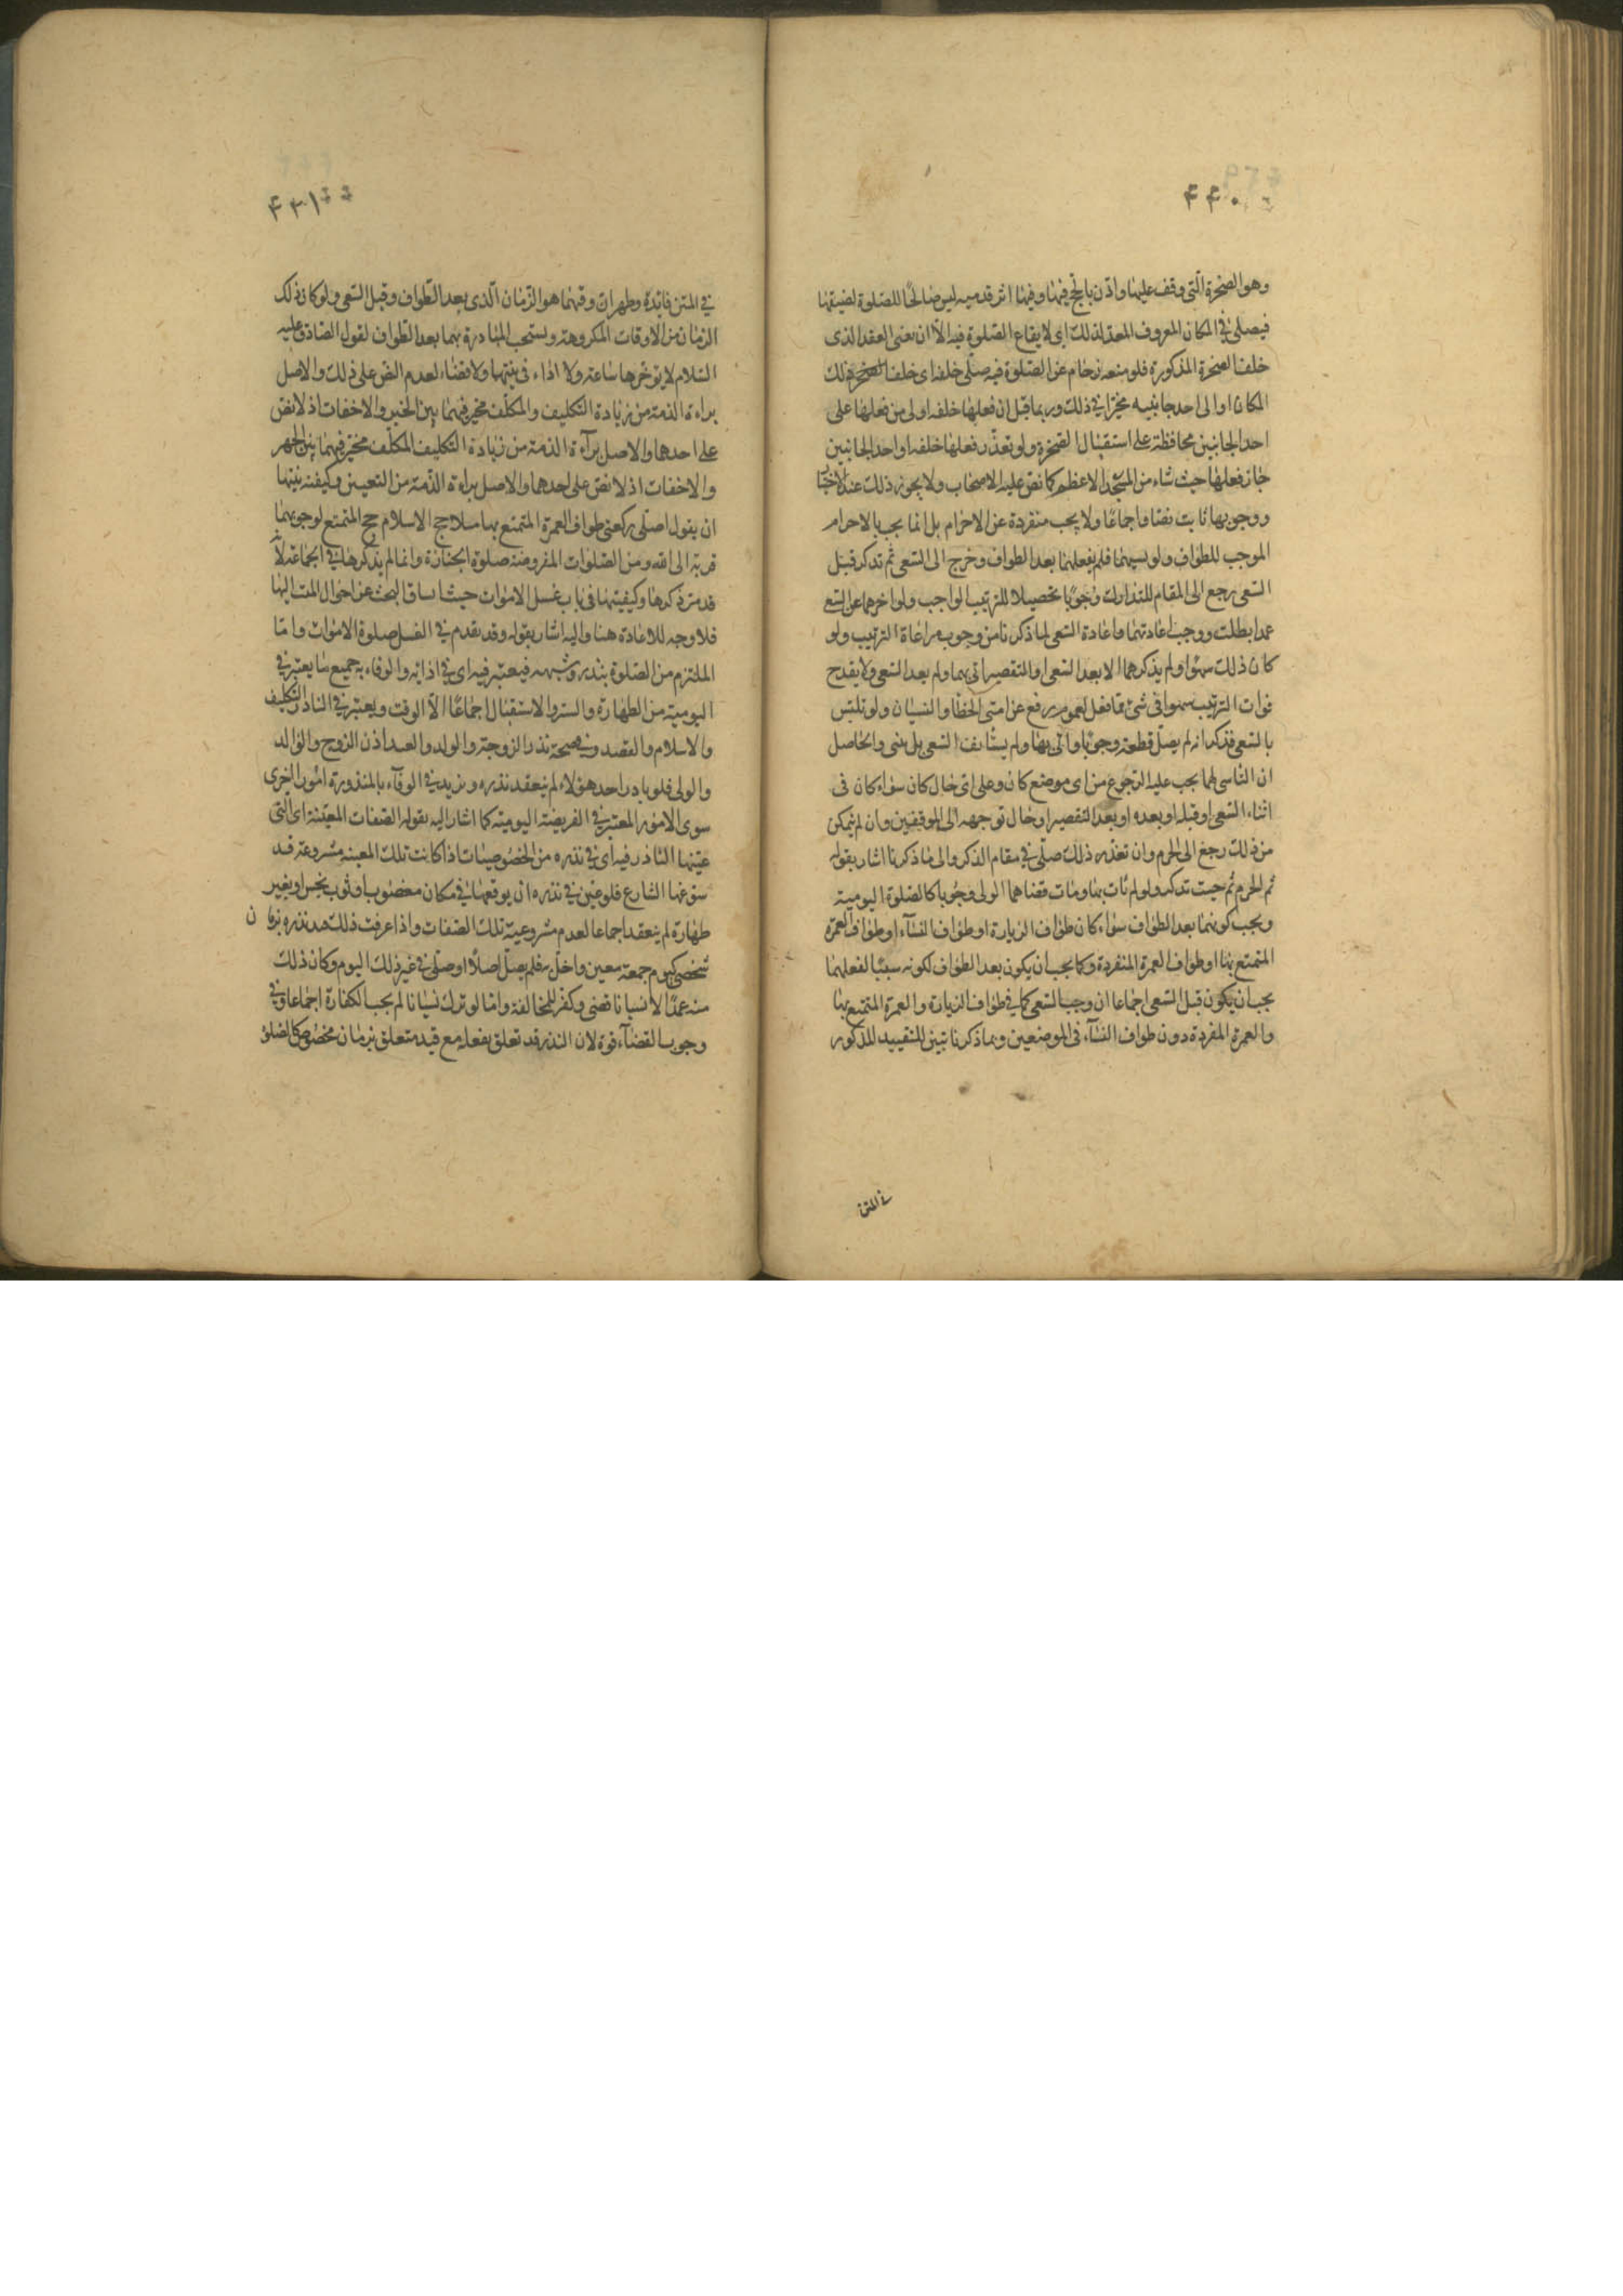 ۴۴۰
وهو الصخرة التى وقف عليها واذن بالحج فيها وفيها اثر قدميه ليس صالحا للصلوة لضيقها
فيصلى فى المكان المعروف المعد لذلك اى لايقاع الصلوة فيه الا ان يعنى العقد الذى
خلف الصخرة المذكورة فلو منعه زحام عن الصلوة فيه صلى خلفه اى خلف ذلك
المكان او الى احد جانبيه مخيرا فى ذلك وربما قيل ان فعلها خلفه اولى من فعلها على
احد الجانبين محافظة على استقبال الصخرة ولو تعذر فعلها خلفه او احد الجانبين
جاز فعلها حيث شاء من المسجد الاعظم كما نص عليه الاصحاب ولا يجوز ذلك عند الاختيار
ووجوبها ثابت نصا واجماعا ولا يجب منفردة عن الاحرام بل انما يجب بالاحرام
الموجب للطواف ولو نسيهما فلم يفعلهما بعد الطواف وخرج الى السعى ثم تذكر قبل
السعى رجع الى المقام للتدارك وجوبا تحصيلا للترتيب الواجب ولو اخرهما عن السعى
عمدا بطلت ووجب اعادتهما واعادة السعى لما ذكرنا من وجوب مراعاة الترتيب ولو
كان ذلك سهوا ولم يذكرهما الا بعد السعى او التقصير اتى بهما ولم يعد السعى ولا يقدح
فوات الترتيب سهوا فى شئ مما فعل لعموم رفع عن امتى الخطا والنسيان ولو تلبس
بالسعى فذكر انه لم يصل قطعه وجوبا واتى بها ولم يستانف السعى بل بنى والحاصل
ان الناسى لهما يجب عليه الرجوع من اى موضع كان وعلى اى حال كان سواء كان فى
اثناء السعى او قبله او بعده او بعد التقصير او حال توجهه الى الموقفين وان لم يتمكن
من ذلك رجع الى الحرم وان تعذر ذلك صلى فى مقام الذكر والى ما ذكرنا اشار بقوله
ثم الحرم ثم حيث تذكر ولو لم يات بهما ومات قضاهما الولى وجوبا كالصلوة اليومية
ويجب كونهما بعد الطواف سواء كان طواف الزيارة او طواف النساء او طواف العمرة
المتمتع بها او طواف العمرة المنفردة وكما يجب ان يكون بعد الطواف لكونه سببا لفعلهما
يجب ان يكون قبل السعى اجماعا ان وجب السعى كما فى طواف الزيارة والعمرة المتمتع بها
والعمرة المفردة دون طواف النساء فى الموضعين وبما ذكرنا تبين للتقييد المذكور
فى المتن
۴۴۱
فى المتن فائدة وظهر ان وقتهما هو الزمان الذى بعد الطواف وقبل السعى ولو كان ذلك
الزمان من الاوقات المكروهة ويستحب المبادرة بهما بعد الطواف لقول الصادق عليه
السلام لا يوخرها ساعة ولا اداء فى نيتهما ولا قضاء لعدم النص على ذلك والاصل
براءة الذمة من زيادة التكليف والمكلف مخير فيهما بين الجهر والاخفات اذ لا نص
على احدهما والاصل براءة الذمة من زيادة التكليف المكلف مخير فيهما بين الجهر
والاخفات اذ لا نص على احدهما والاصل براءة الذمة من التعيين وكيفية نيتها
ان يقول اصلى ركعتى طواف العمرة المتمتع بها حج الاسلام حج المتمتع لوجوبهما
قربة الى الله ومن الصلوات المفروضة صلوة الجنازة وانما لم يذكرها فى الجماعة لانه
قد مر ذكرها وكيفيتها فى باب غسل الاموات حيث انساق البحث عن احوال الميت اليها
فلا وجه للاعادة هنا واليه اشار بقوله وقد تقدم فى الغسل صلوة الاموات واما
الملتزم من الصلوة بنذر وشبهه فيعتبر فيه اى فى ادائه والوفاء به جميع ما يعتبر فى
اليومية من الطهارة والستر والاستقبال اجماعا الا الوقت ويعتبر فى الناذر التكليف
والاسلام والقصد وفى صحة نذر الزوجة والولد والعبد اذن الزوج والوالد
والولى فلو بادر احد هؤلاء لم ينعقد نذره ويزيد فى الوفاء بالمنذورة امور اخرى
سوى الامور المعتبر فى الفريضة اليومية كما اشار اليه بقوله الصفات المعينة اى التى
عينها الناذر فيه اى فى نذره من الخصوصيات اذا كانت تلك المعينة مشروعة قد
سوغها الشارع فلو عين فى نذره ان يوقعها فى مكان مغصوب او ثوب نجس او بغير
طهارة لم ينعقد اجماعا لعدم مشروعية تلك الصفات واذا عرفت ذلك نذره بزمان
شخصى كيوم جمعة معين واخل به فلم يصل اصلا او صلى فى غير ذلك اليوم وكان ذلك
منه عمدا لا نسيانا قضى وكفر للمخالفة واما لو ترك نسيانا لم يجب الكفارة اجماعا وفى
وجوب القضاء قوة لان النذر قد تعلق بفعله مع قيد متعلق بزمان مخصوص كالصلوة